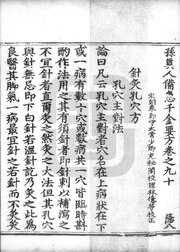 孫真人備急千金要方卷之九十
宋朝奉郎守太常少卿充秘閣校理林億等校正
針灸孔穴方
孔穴主對法
論曰凡云孔穴主對者穴名在上病狀在下
或一病有數十穴或數病共一穴皆臨時斟
酌作法用之其有須針者即針刺以補瀉之
不宜針者直爾灸之然灸之大法但其孔穴
與針無忌即下白針若溫針訖乃灸之此爲
良醫其脚氣一病最宜針之若針而不灸灸